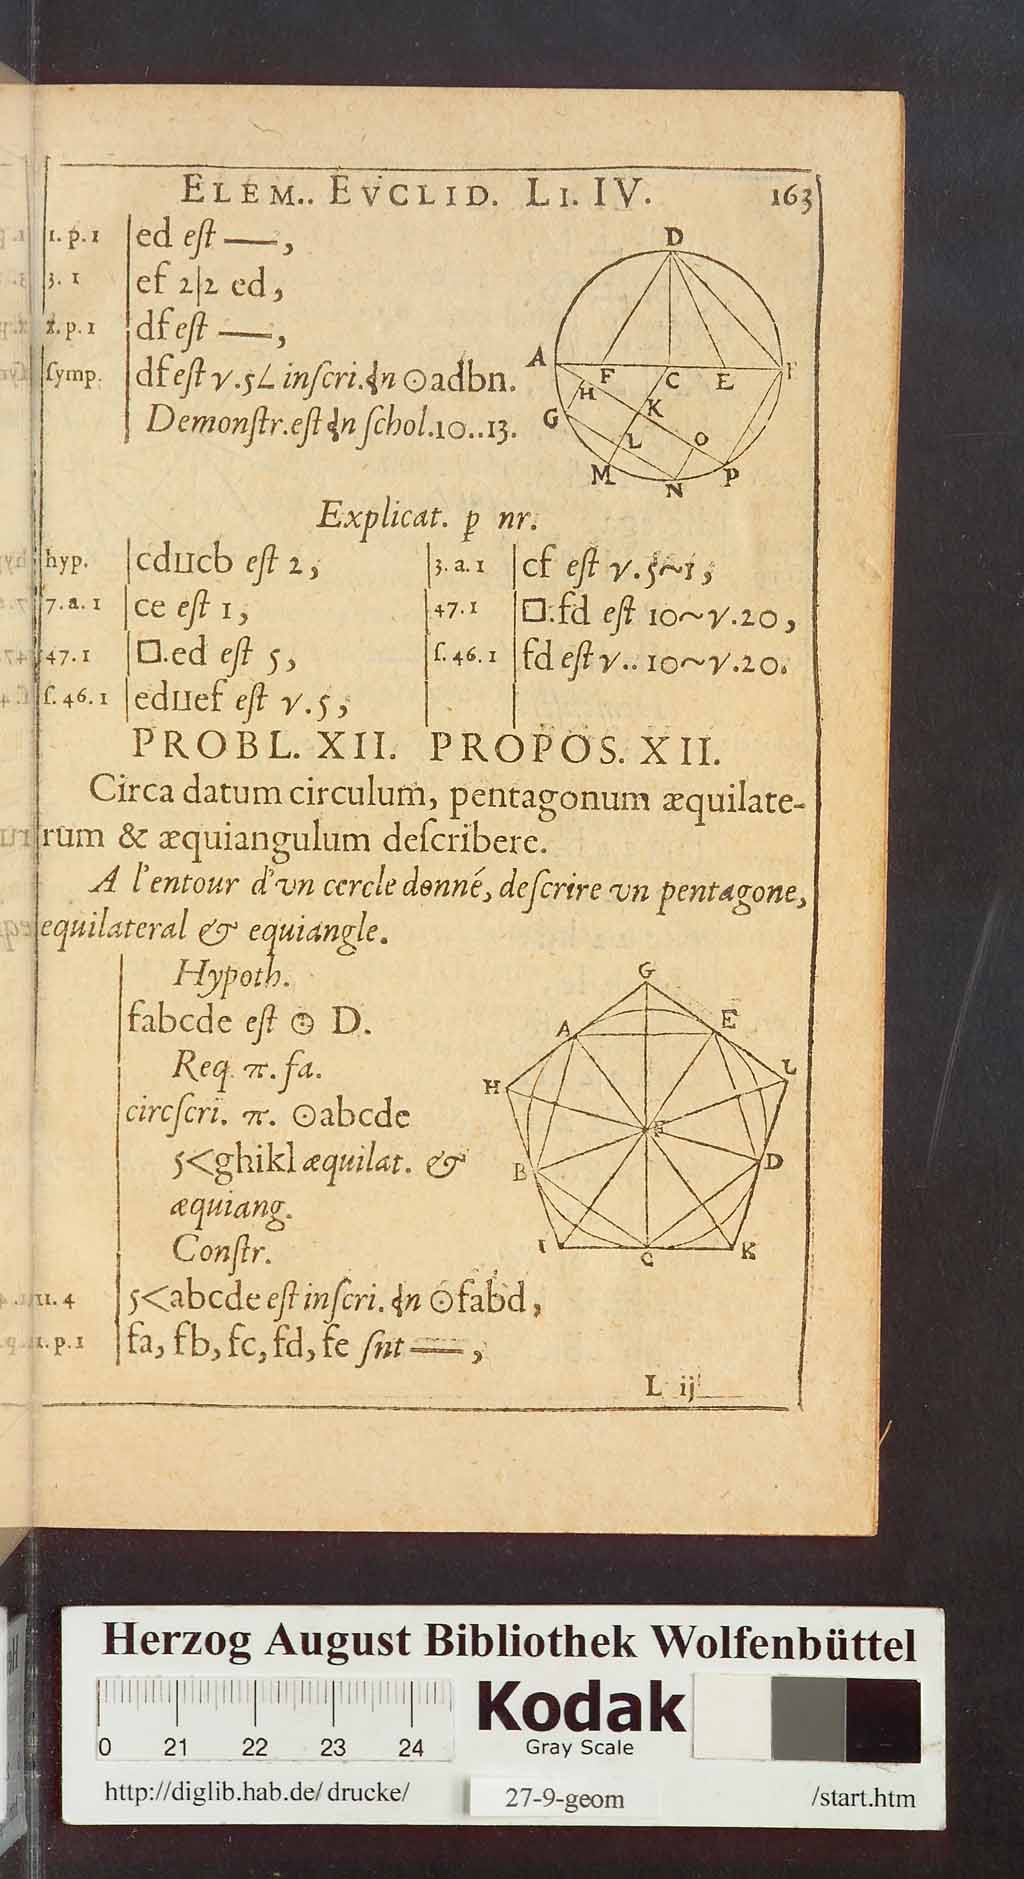 ELEM.. EVCLID. LI. IV. 163
1. p. 1 ed est —,
3. 1 ef 2|2 ed,
1. p. 1 df est —,
symp. df est γ.5∠ inscri. n ⊙adbn.
Demonstr. est n schol.10..13.
D
A F C E
H K
G L O
M N P
Explicat. p nr.
hyp. cdⅡcb est 2, 3. a. 1 cf est γ.5~1,
7. a. 1 ce est 1, 47. 1 □.fd est 10~γ.20,
47. 1 □.ed est 5, f. 46. 1 fd est γ.. 10~γ.20.
f. 46. 1 edⅡef est γ.5,
PROBL. XII. PROPOS. XII.
Circa datum circulum, pentagonum æquilate-
rum & æquiangulum describere.
A l'entour d'vn cercle donné, descrire vn pentagone,
equilateral & equiangle.
Hypoth.
fabcde est ⊙ D.
Req. π. fa.
circscri. π. ⊙abcde
5<ghikl æquilat. &
æquiang.
Constr.
G
A E
H L
F
B D
I C K
11. 4 5<abcde est inscri. n ⊙fabd,
1. p. 1 fa, fb, fc, fd, fe snt ═,
L ij
Herzog August Bibliothek Wolfenbüttel
0 21 22 23 24
Kodak
Gray Scale
http://diglib.hab.de/drucke/ 27-9-geom /start.htm